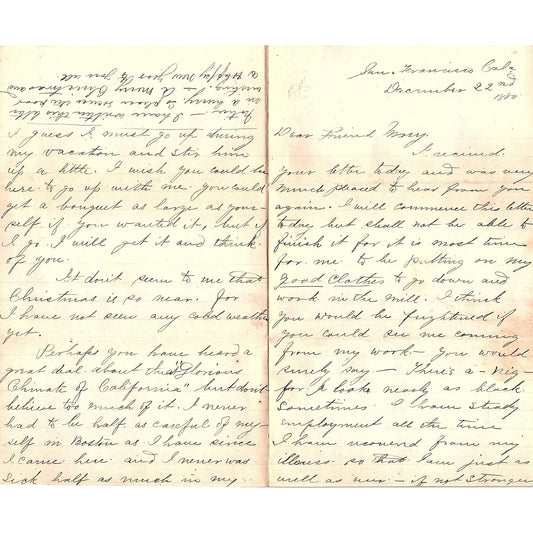 San. Francisco Cala
December 22nd
1880.
Dear Friend Mary.
I recieved
your letter today and was very
much pleased to hear from you
again. I will commence this letter
today but shall not be able to
finish it for it is most time
for me to be putting on my
good clothes to go down and
work in the mill. I think
you would be frightened if
you could see me coming
from my work — You would
surely say — There's a - nig -
for I look nearly as black
Sometimes. I have steady
employment all the time
I have recoverd from my
illness so that I am just as
well as ever — if not stronger
I guess I must go up during
my vacation and stir him
up a little. I wish you could be
here to go up with me. you could
get a bouquet as large as your-
self if you wanted it, but if
I go I will get it and think
of you.
It don't seem to me that
Christmas is so near. for
I have not seen any cold weather
yet.
Perhaps you have heard a
great deal about the "Glorious
Climate of California" but don't
believe too much of it. I never
had to be half as careful of my-
self in Boston as I have since
I came here and I never was
sick half as much in my --
Later — I have written this letter
in a hurry, so please excuse the poor
writing — A Merry Christmas and
a Happy New Year to you all.